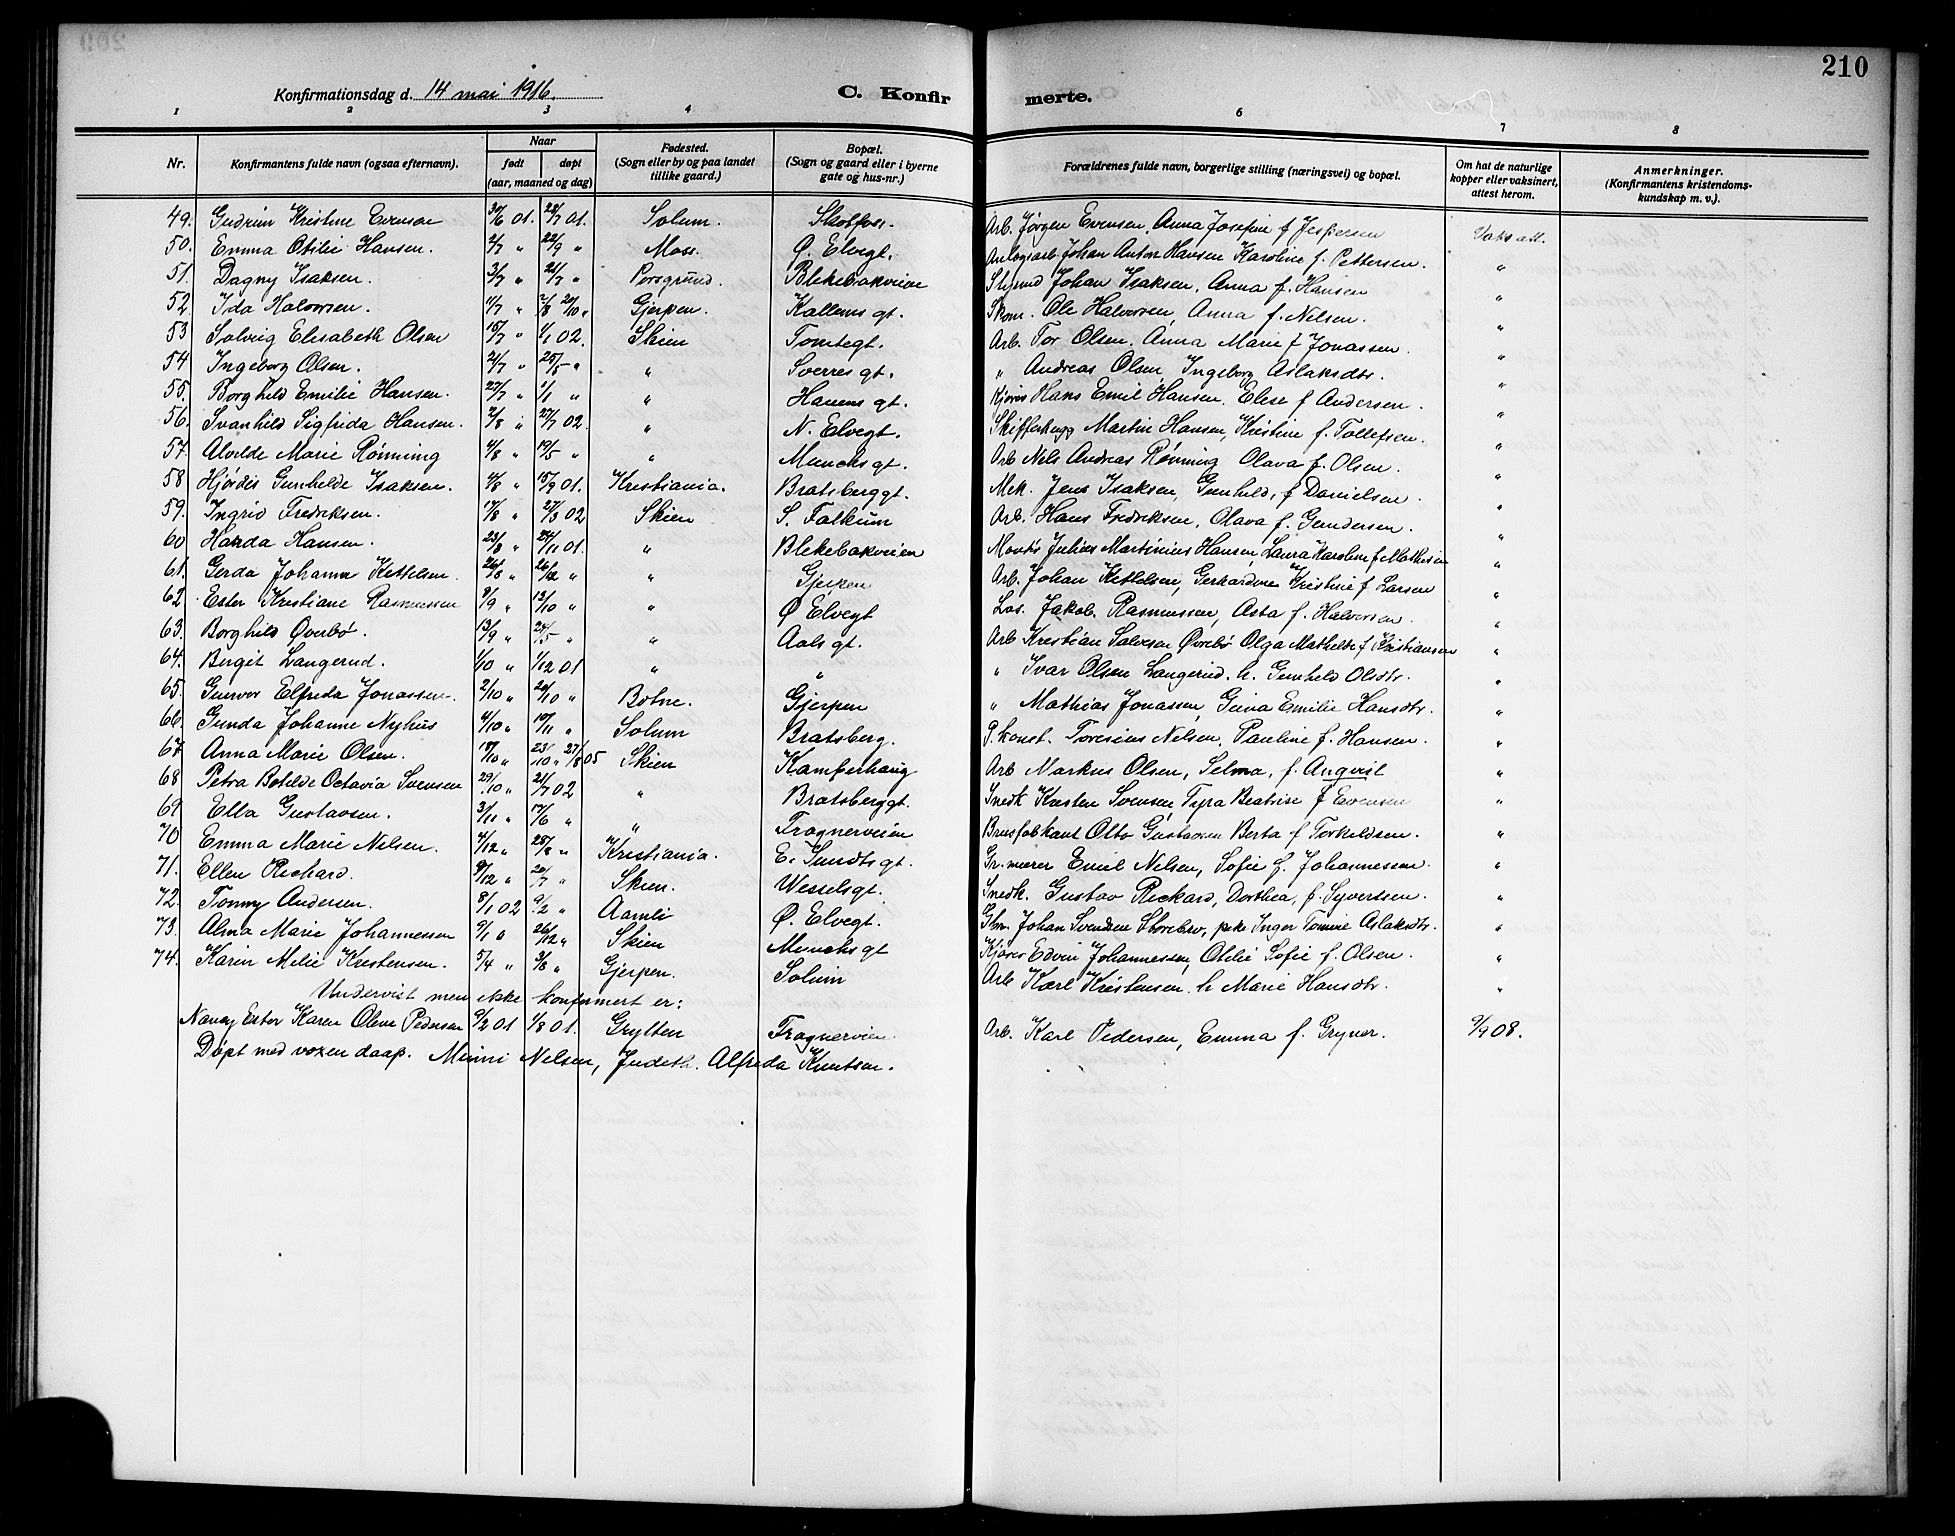 210
Konfirmationsdag d. 14 mai 1916. C. Konfir merte.
1 2 3 4 6 7 8
Nr. Konfirmantens fulde navn (ogsaa efternavn). Naar født døpt (aar, maaned og dag) Fødested. (Sogn eller by og paa landet tillike gaard.) Bopæl. (Sogn og gaard eller i byerne gate og hus-nr.) Forældrenes fulde navn, borgerlige stilling (næringsvei) og bopæl. Om hat de naturlige kopper eller vaksinert, attest herom. Anmerkninger. (Konfirmantens kristendoms-kundskap m. v.).
49. Gudrun Kristine Evensen 30/6 01. 28/7 01. Solum. Skotfoss. Arb. Jørgen Evensen, Anna Josefine f Jespersen Vaks att.
50. Emma Otilie Hansen. 2/7 " 22/9 " Moss. Ø. Elvegt. Anlægsarb. Johan Anton Hansen Karoline f. Pettersen. "
51. Dagny Isaksen. 3/7 " 21/7 " Porsgrund. Blekebakveien Johan Isaksen, Anna f. Hansen "
52. Ida Halvorsen. 11/7 " Gjerpen. gt. Skom. Ole Halvorsen, Anna f. Nilsen. "
53 Solveig Elisabeth Olsen 15/7 " 1/1 02. Skien Tomtegt. Arb. Tor Olsen, Anna Marie f Jonassen. "
54 Ingeborg Olsen. 21/7 " 25/5 " " Sverres gt. " Andreas Olsen, Ingeborg Aslaksdtr. "
55. Borghild Emilie Hansen. 27/7 " 1/1 " " Havens gt. Kjøres Hans Emil Hansen. Elise f Andersen. "
56. Svanhild Sigfrida Hansen. 2/8 " 27/7 02. " N. Elvegt. Martin Hansen, Kristine f. Tollefsen. "
57. Alvilde Marie Rønning 4/8 " 19/5 " " Munchs gt. Arb Nils Andreas Rønning Olava f. Olsen. "
58 Hjørdis Gunhilde Isaksen. 4/8 " 15/9 01. Kristiania. Bratsberggt. Mek. Jens Isaksen, Gunhild, f Danielsen. "
59. Ingrid Fredriksen. 17/8 " 2/3 02 Skien S. Falkum Arb. Hans Fredriksen, Olava f. Gundersen. "
60 Hansen. 23/8 " 24/11 01. " Blekebakveien Montør Julius Martinius Hansen, Laura Karoline f Mathisen "
61. Gerda Johanne Kittelsen. 26/8 " 26/12 " " Gjerpen Arb. Johan Kittelsen, Kristine f Larsen "
62. Ester Kristiane Rasmussen 9/9 " 13/10 " " Ø Elvegt Los. Jakob Rasmussen, Asta f. Halvorsen. "
63. Borghild Øverbø. 13/9 " 24/5 " " Aals gt. Arb Kristian Salvesen Øvrebø Olga Mathilde f Kristiansen "
64. Birgit Langerud. 1/10 " 1/12 01 " " " Ivar Olsen Langerud. h. Gunhild Olsdtr. "
65. Gunvor Elfrida Jonassen. 2/10 " 20/10 " Botne. Gjerpen " Mathias Jonassen, Gina Emilie Hansdtr. "
66. Gunda Johanne Nyhus 4/10 " 10/11 " Solum Bratsberg. P. konst. Toresius Nilsen, Pauline f. Hansen. "
67 Anna Marie Olsen. 18/10 " 23/10 " 27/8 05 Skien Kamperhaug Arb Markus Olsen, Selma, f. Anqvist "
68 Petra Botilde Octavia Svensen 29/10 " 21/7 02 " Bratsberggt. Snedk Kristen Svensen, Tyra Beatrise f Evensen "
69 Ella Gustavsen. 3/11 " 17/6 " " Frognerveien Brusfabkant Otto Gustavsen Berta f Torkildsen. "
70 Emma Marie Nilsen. 4/12 " 28/8 " Kristiania. E. Sundts gt. Gr. murer Emil Nilsen, Sofie f. Johannessen. "
71. Ellen Richard. 9/12 " 20/7 " Skien. Wesselsgt. Snedk. Gustav Rickard, Dorthea, f. Syvertsen. "
72. Tomny Andersen. 8/1 02 9/2 " Aamli Ø. Elvegt. Johan Svendsen Storebro, Inger Tomine Aslaksdtr. "
73. Alma Marie Johannessen 9/1 " 26/12 " Skien Munchs gt Kjører Edvin Johannessen, Otilie Sofie f. Olsen. "
74. Karin Melie Kristensen. 5/4 " 3/8 " Gjerpen. Solum Arb Karl Kristensen. h Marie Hansdtr. "
Undervist men ikke konfirmert er:
Nancy Ester Karen Olene Pedersen 9/2 01 1/8 01. Grytten Frognerveien. Arb. Karl Pedersen, Emma f. Gryner. 9/9 08.
Døpt med voxen daap. Minni Nilsen, Judith. Alfreda Knutsen.